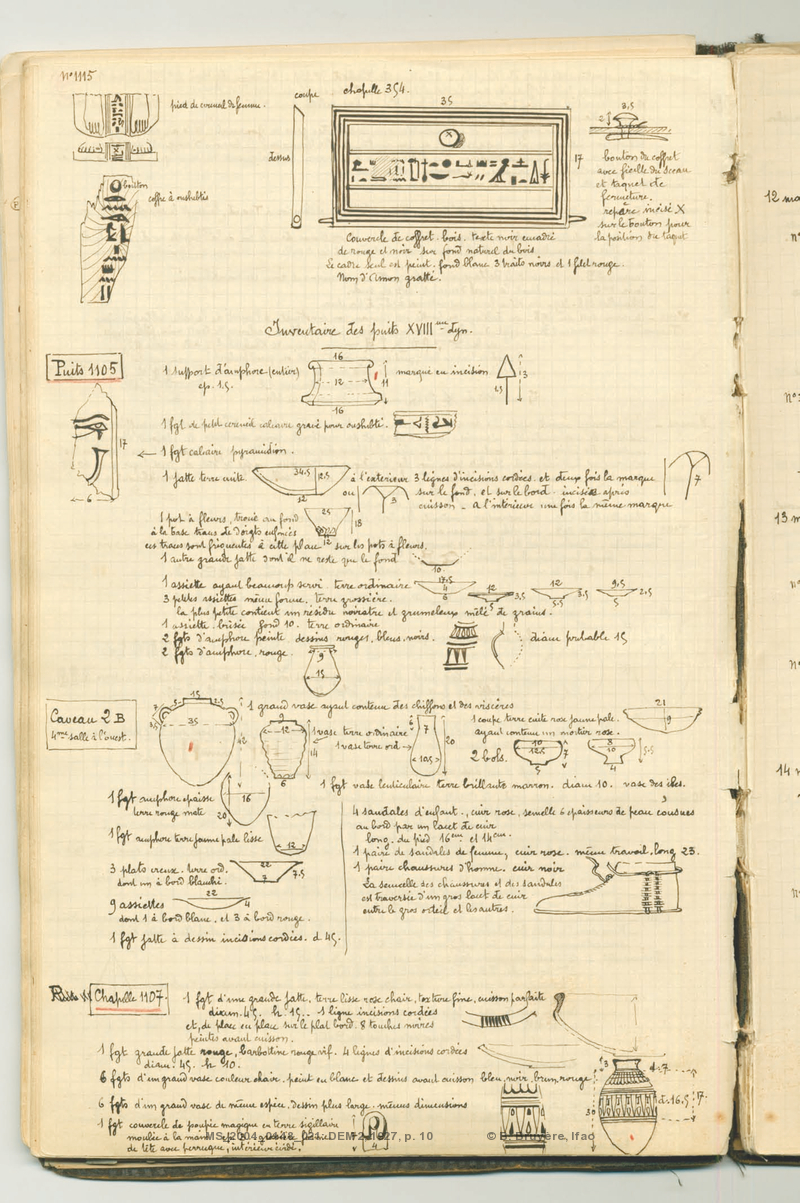 n° 1115
pied de cercueil de femme.
bouton
coffre à oushebtis
coupe
chapelle 354.
35
dessus
17
3,5
2
bouton du coffret
avec ficelle du sceau
et taquet de
fermeture.
repère incisé X
sur le bouton pour
la position du taquet
Couvercle de coffret. bois. texte noir encadré
de rouge et noir sur fond naturel du bois.
Le cadre seul est peint. fond blanc 3 traits noirs et 1 filet rouge.
Nom d'Amon gratté.
Inventaire des puits XVIII dyn.
Puits 1105
1 support d'amphore (entier)
ep. 1.5.
16
12
11
16
marque en incision
3
1.5
17
6
1 fgt de petit cercueil calcaire gravé pour oushebti.
1 fgt calcaire pyramidion.
1 jatte terre cuite.
34.5
12.5
12
à l'extérieur 3 lignes d'incisions cordées. et deux fois la marque
ou
3
sur le fond, et sur le bord. incisées après
cuisson. A l'intérieur une fois la même marque
7
1 pot à fleurs, troué au fond
à la base traces de doigts enfoncés
25
18
12
ces traces sont fréquentes à cette place sur les pots à fleurs.
1 autre grande jatte dont il ne reste que le fond
10.
1 assiette ayant beaucoup servi. terre ordinaire
17,5
4
6
3 petites assiettes même forme, terre grossière.
12
3,5
5
12
3.5
5.5
9,5
2,5
5
la plus petite contient un résidu noirâtre et grumeleux mêlé de grains.
1 assiette brisée fond 10. terre ordinaire
2 fgts d'amphore peinte dessins rouges, bleus, noirs.
diam probable 15
2 fgts d'amphore, rouge.
9
15
Caveau 2 B
4me salle à l'ouest.
15
35
42
1 grand vase ayant contenu des chiffons et des viscères
9
12
14
6
1 vase terre ordinaire
1 vase terre ord →
6
7
20
10,5
1 coupe terre cuite rose jaune pale.
ayant contenu un mortier rose.
21
9
2 bols.
10
12,5
7
5
8
10
5,5
4
1 fgt vase lenticulaire terre brillante marron. diam 10. vase des îles.
1 fgt amphore épaisse
terre rouge mate
16
20
1 fgt amphore terre jaune pale lisse
12
3 plats creux. terre ord.
dont un à bord blanchi.
22
7,5
7
9 assiettes
22
4
dont 1 à bord blanc, et 3 à bord rouge.
1 fgt jatte à dessin incisions cordées. d 45.
4 sandales d'enfant., cuir rose, semelle 6 épaisseurs de peau cousues
au bord par un lacet de cuir
long. du pied 16cm et 14cm.
1 paire de sandales de femme, cuir rose. même travail. long 23.
1 paire chaussures d'homme. cuir noir
La semelle des chaussures et des sandales
est traversée d'un gros lacet de cuir
entre le gros orteil et les autres.
Chapelle 1107.
1 fgt d'une grande jatte. terre lisse rose chair, texture fine, cuisson parfaite
diam. 45. h. 15. 1 ligne incisions cordées
et, de place en place sur le plat bord. 8 touches noires
peintes avant cuisson.
1 fgt grande jatte rouge, barbottine rouge vif. 4 lignes d'incisions cordées
diam. 45. h 10.
6 fgts d'un grand vase couleur chair. peint en blanc et dessins avant cuisson bleu, noir, brun, rouge.
6 fgts d'un grand vase de même espèce. dessin plus large. mêmes dimensions
13
30
d. 7
d. 16.5
7
1 fgt couvercle de poupée magique en terre sigillaire
moulée à la main
de tête avec perruque, intérieur évidé.
4
MS_2004_0148_021. DEM 2, 1927, p. 10
© B. Bruyère, Ifao
12 ma
13 m
14 m